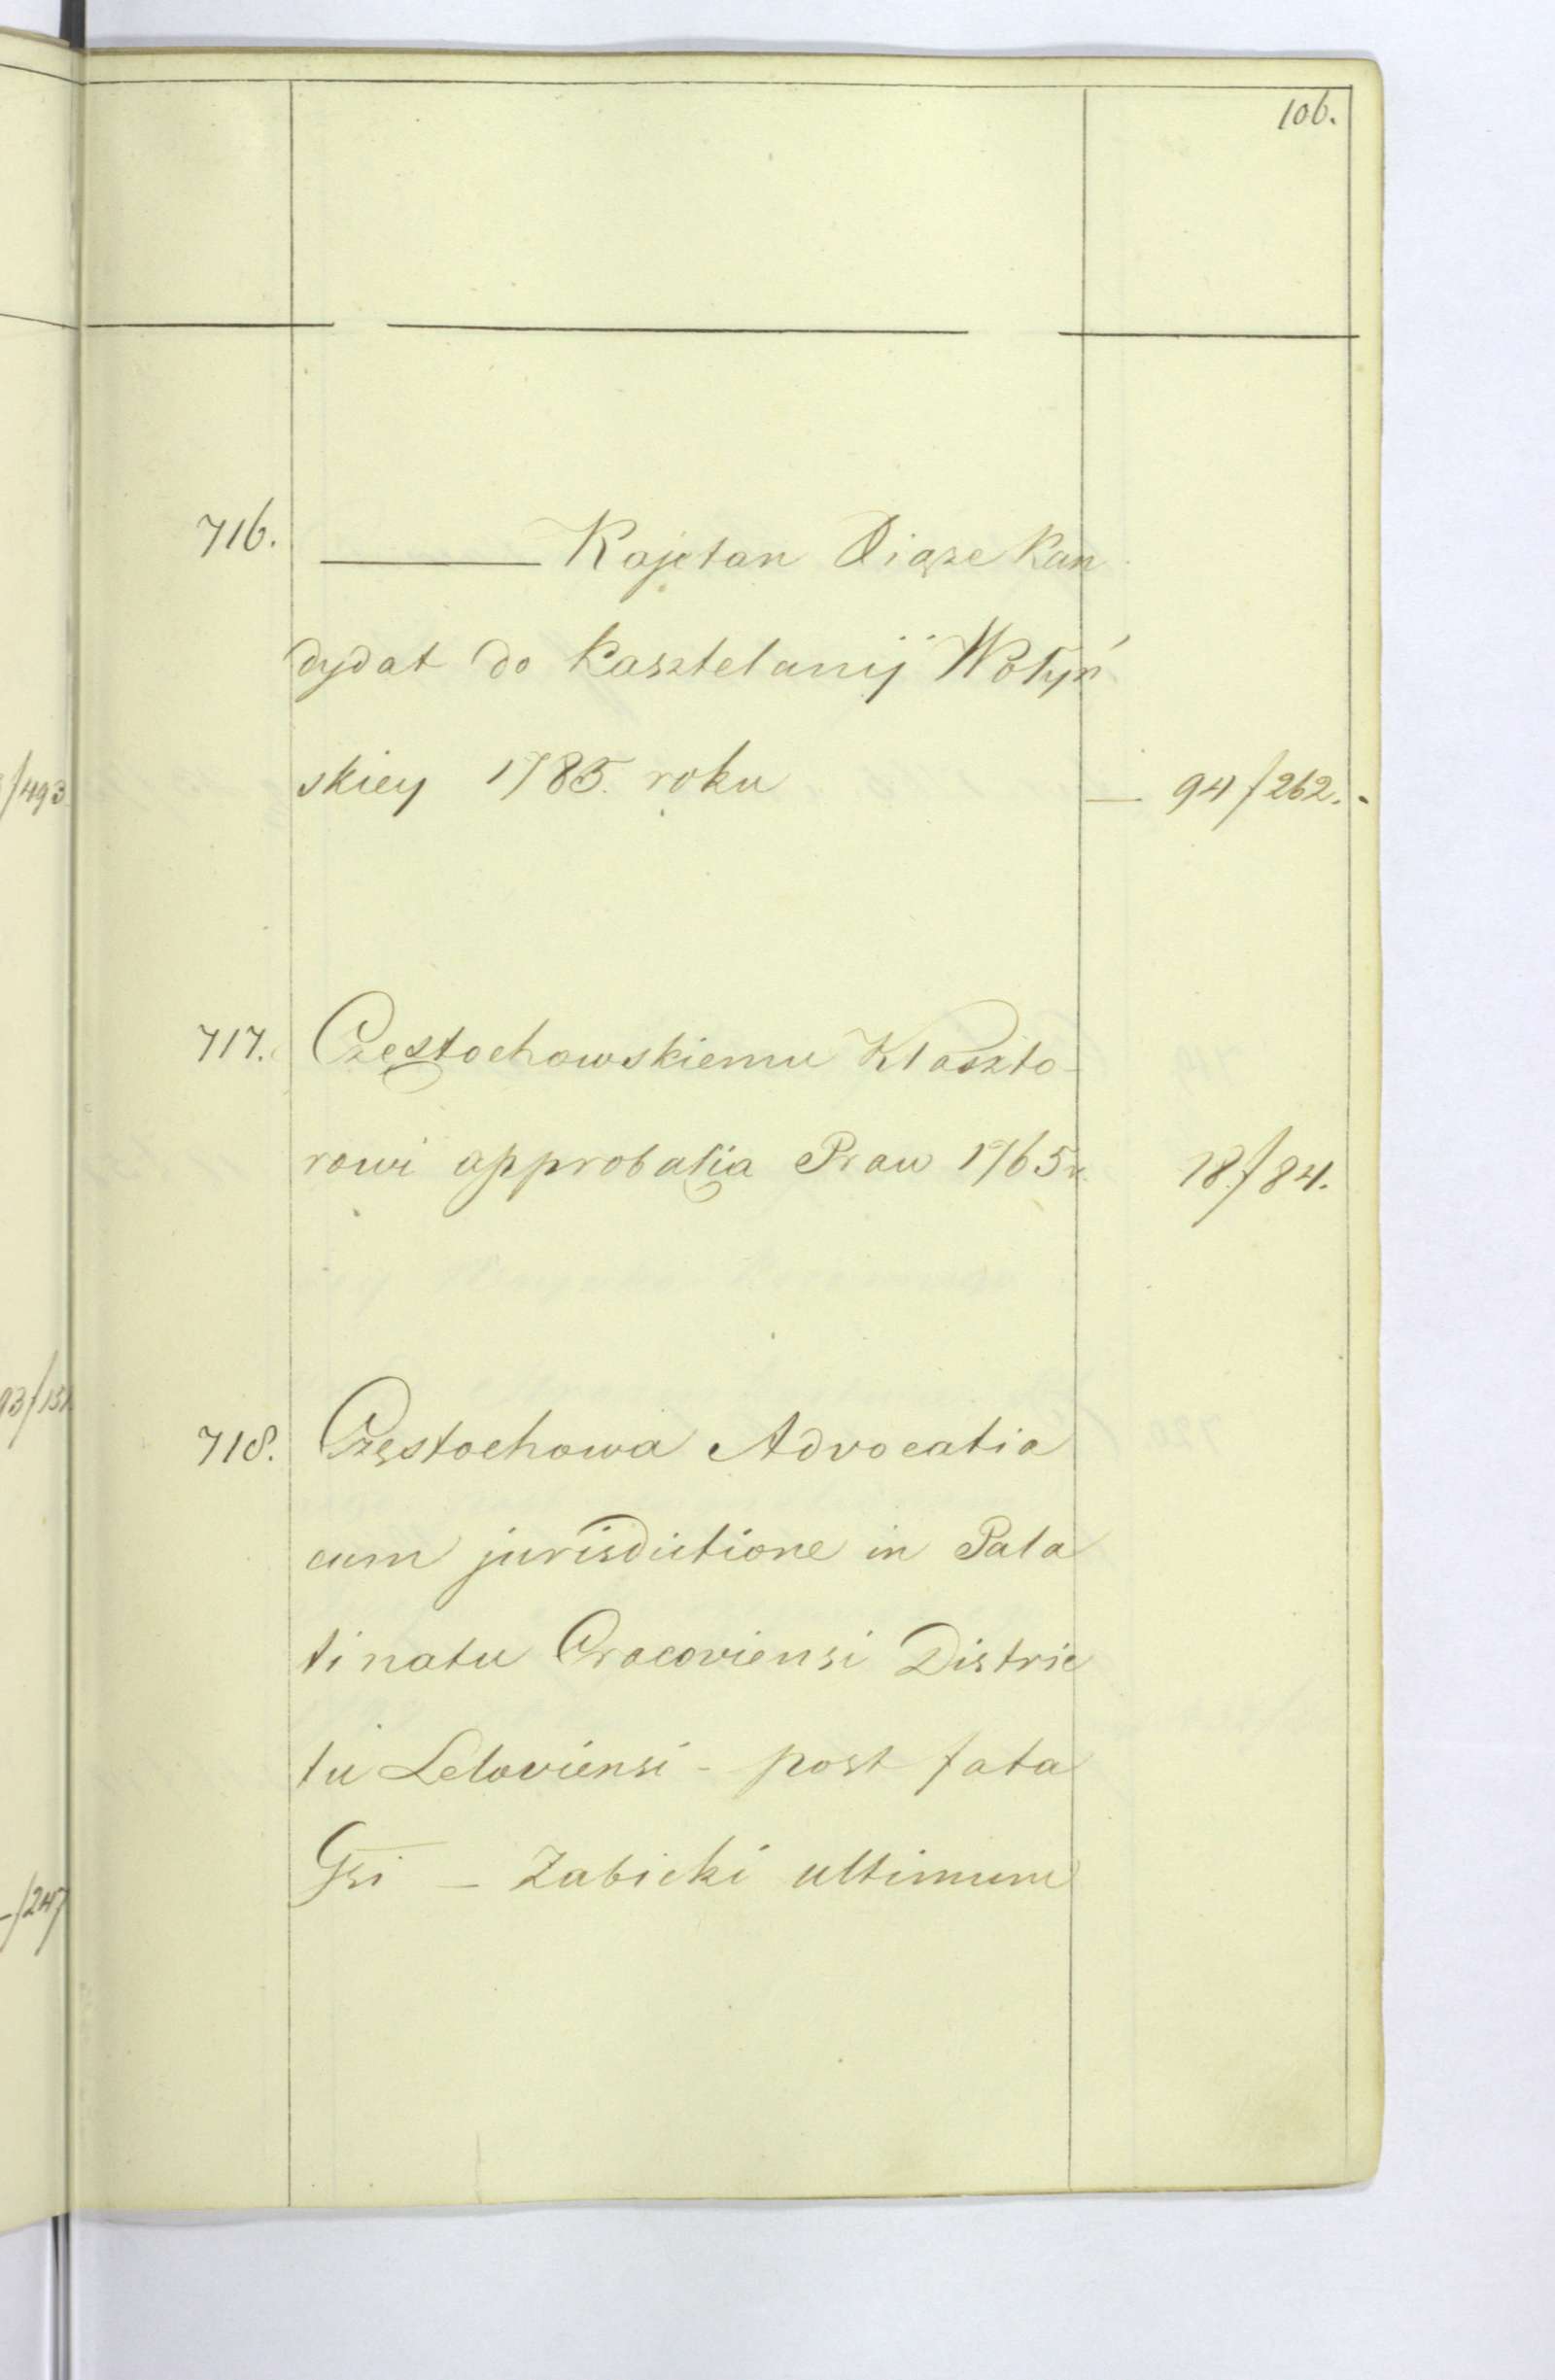 106.
716. ——— Kajetan Xiąze Kan
dydat do Kasztelanij Wołyń
skiey 1785. roku — 94/262.
717. Częstochowskiemu Klaszto-
rowi approbatia Praw 1765 r. 18/84.
718. Częstochowa Advocatia
cum jurisdictione in Pala
tinatu Cracoviensi Distric
tu Leloviensi - post fata
Gsi — Zabicki ultimum
/493
93/131
-/247